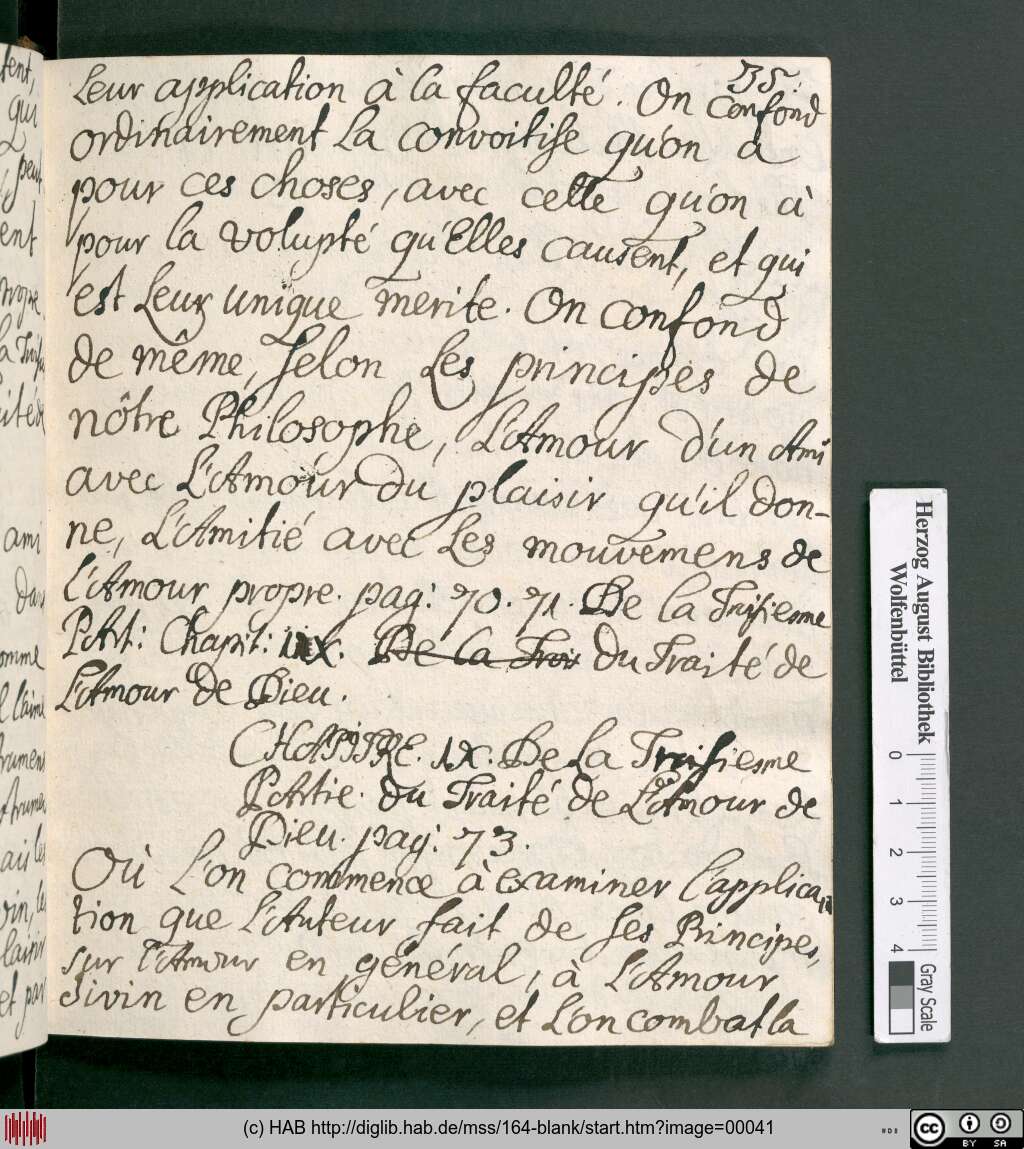 35.
Leur application à la faculté. On confond
ordinairement La convoitise qu'on a
pour ces choses, avec celle qu'on à
pour la volupté qu'Elles causent, et qui
est Leur unique merite. On confond
de même, selon Les principes de
nôtre Philosophe, L'Amour d'un Ami
avec L'Amour du plaisir qu'il don-
ne, L'Amitié avec Les mouvemens de
l'Amour propre. pag: 70. 71. De la Troisiesme
PArt: Chapit: IIX. De la Trois Du Traité de
L'Amour De Dieu.
CHAPITRE. IX. De La Troisiesme
PArtie. du Traité de L'Amour de
Dieu. pag: 73.
Où L'on commence à examiner l'applica-
tion que L'Auteur fait de ses Principes,
sur l'Amour en général, à L'Amour
divin en particulier, et L'on combat la
tent,
qui
peut
ent
ami
dans
omme
l l'aime
vin, le
plaisir
et par
Herzog August Bibliothek
Wolfenbüttel
0 1 2 3 4
Gray Scale
(c) HAB http://diglib.hab.de/mss/164-blank/start.htm?image=00041
cc BY SA